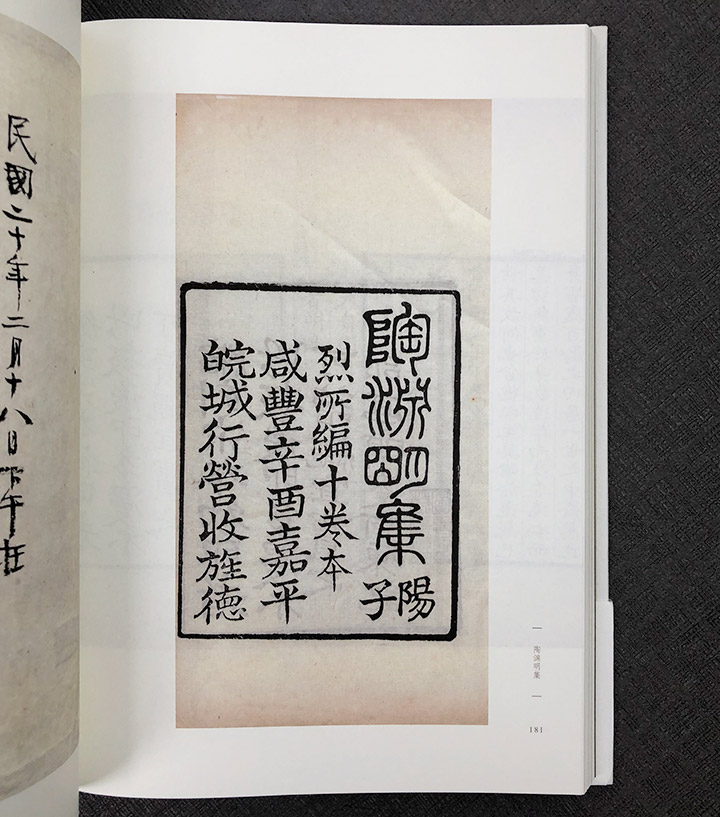 陶淵明集陽子
烈所編十卷本
咸豐辛酉嘉平
皖城行營收旌德
陶淵明集
181
民國二十年二月十八日下午在